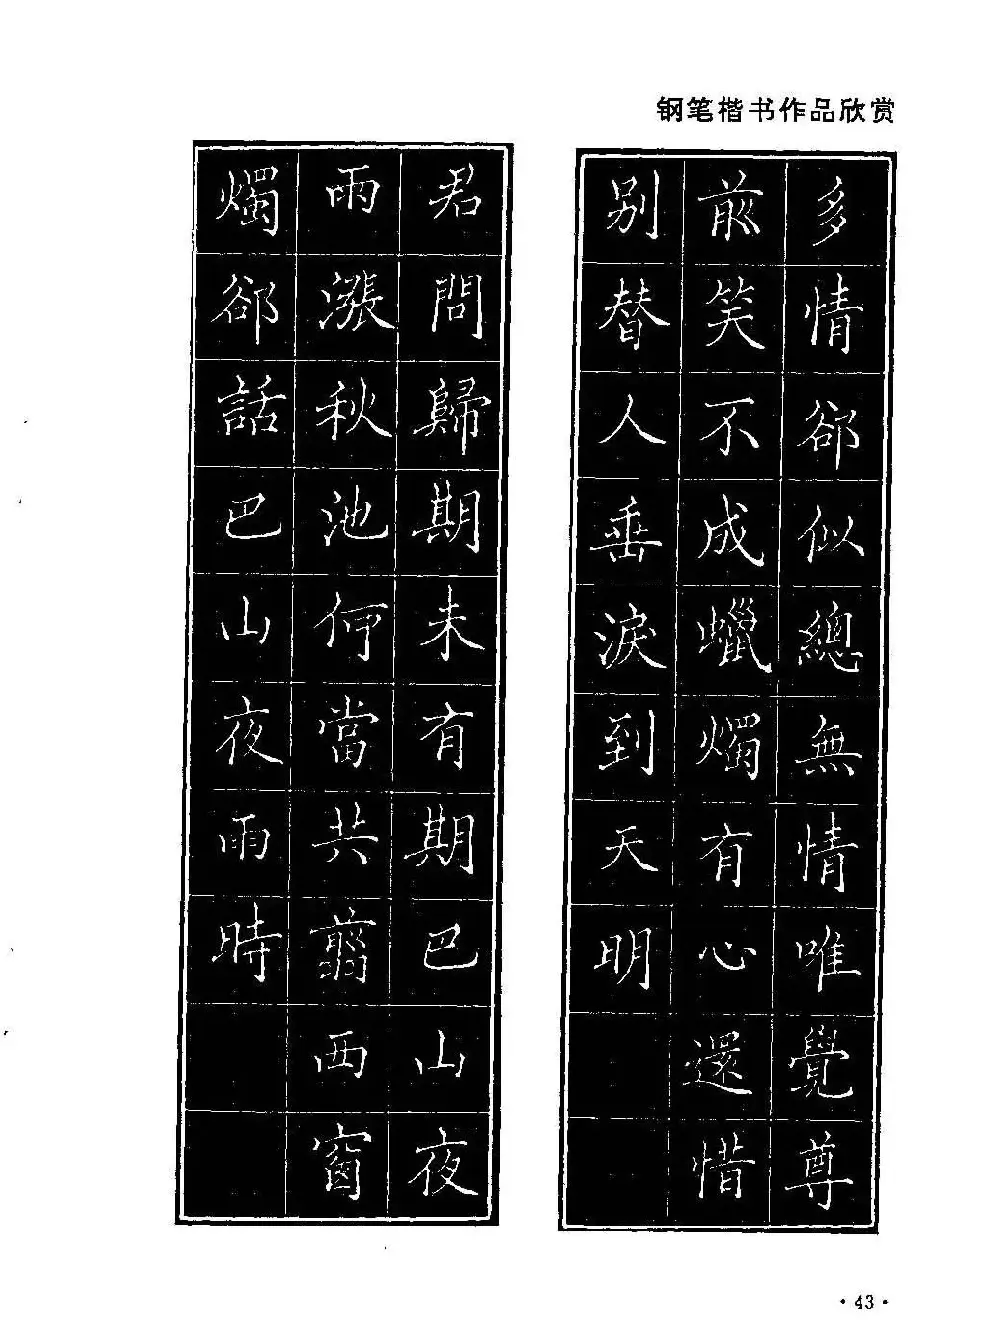 钢笔楷书作品欣赏
多情郤似總無情唯覺尊
前笑不成蠟燭有心還惜
别替人垂淚到天明
君問歸期未有期巴山夜
雨漲秋池何當共翦西窗
燭郤話巴山夜雨時
·43·